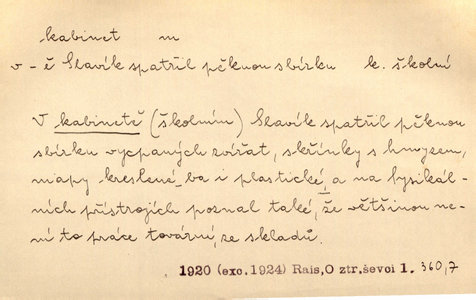 kabinet m
v - ě Slavík spatřil pěknou sbírku k. školní
V kabinetě (školním) Slavík spatřil pěknou
sbírku vycpaných zvířat, skřínky s hmyzem,
mapy kreslené, ba i plastické, a na fysikál-
ních přístrojích poznal také, že většinou ne-
ní to práce tovární, ze skladů.
1920 (exc.1924) Rais,O ztr.ševci 1. 360,7